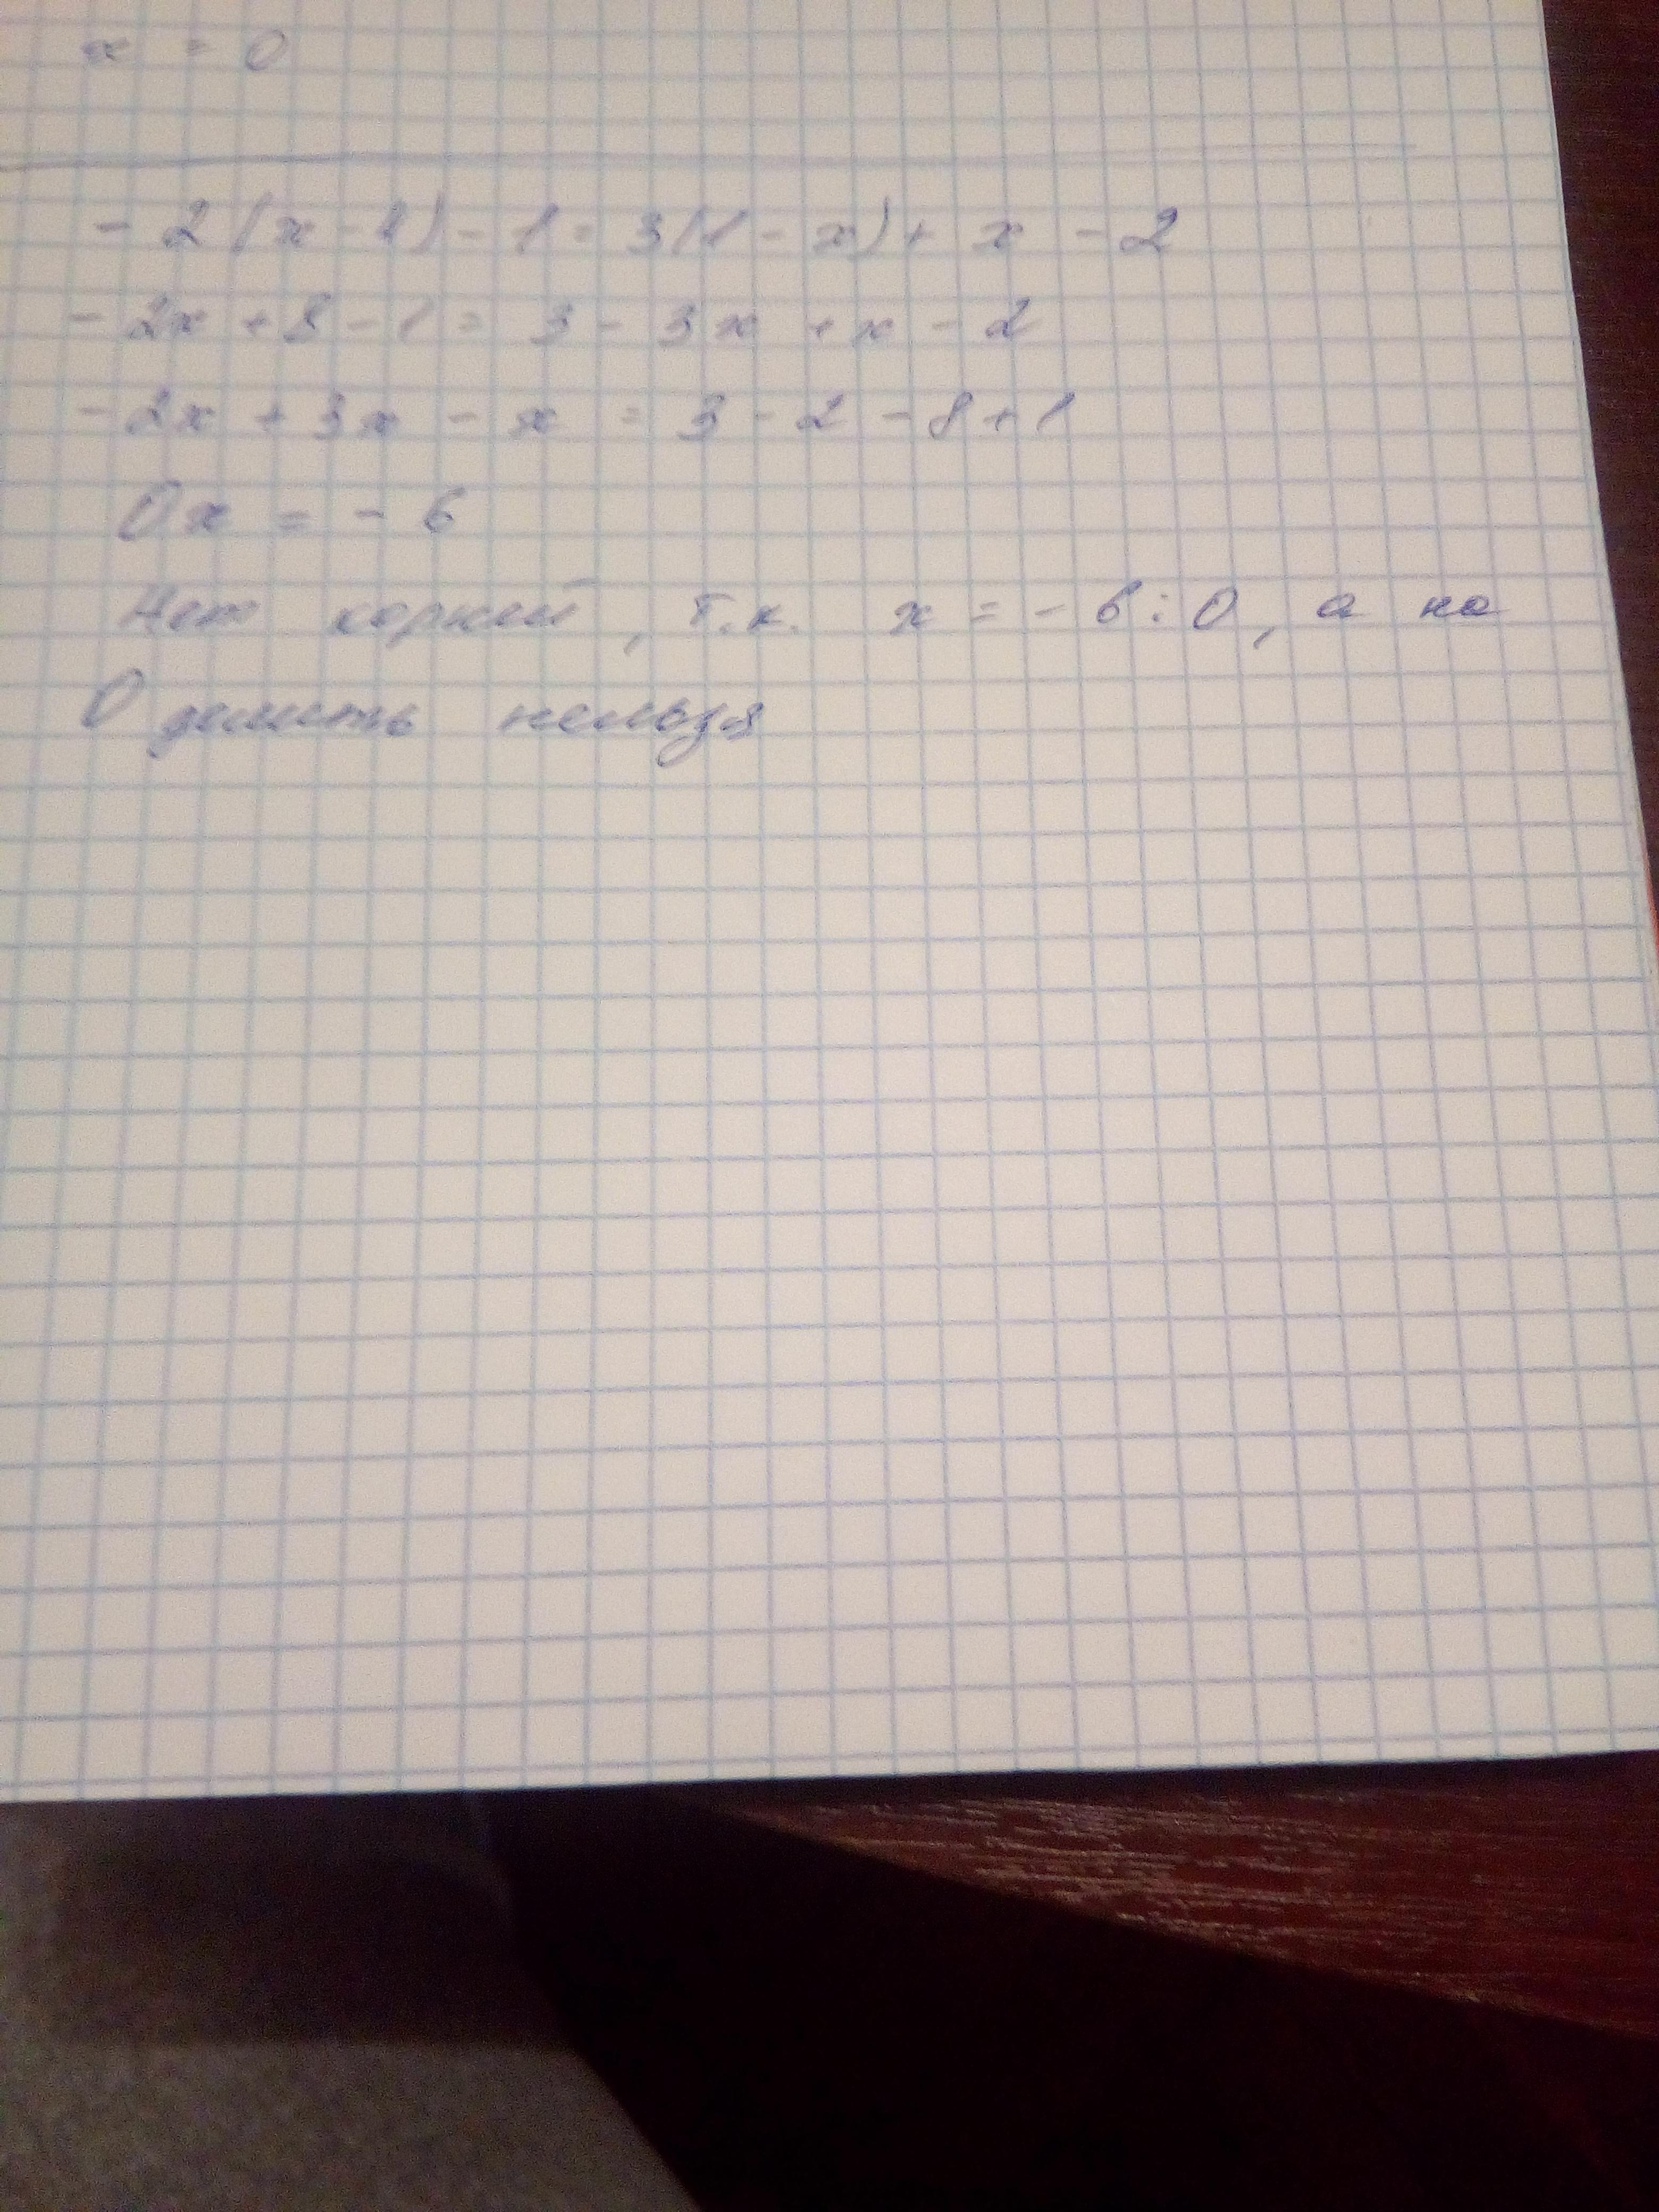 x = 0
- 2(x - 4) - 1 = 3(1 - x) + x - 2
- 2x + 8 - 1 = 3 - 3x + x - 2
- 2x + 3x - x = 3 - 2 - 8 + 1
0x = - 6
Нет корней, т.к. x = - 6 : 0, а на
0 делить нельзя